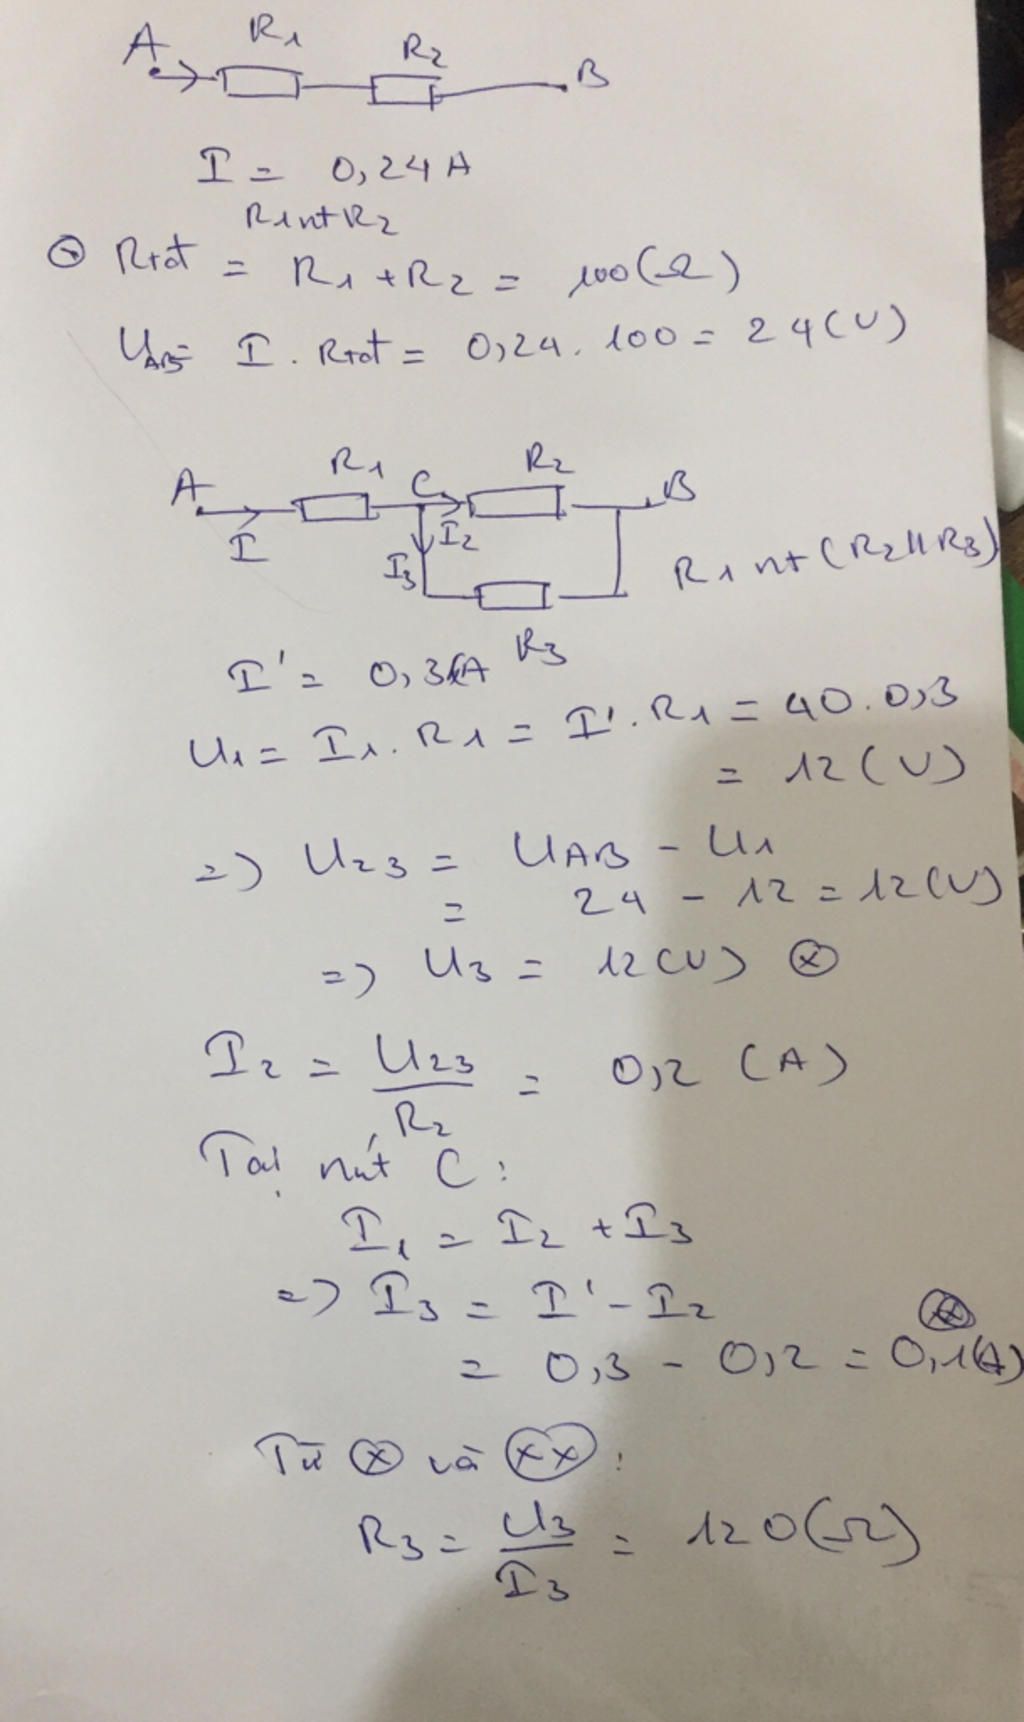 A R1 R2 B
I = 0,24A
R1ntR2
Rtđ = R1 + R2 = 100(Ω)
UAB = I . Rtđ = 0,24 . 100 = 24(V)
A R1 C R2 B
I I2
I3 R1 nt (R2//R3)
R3
I' = 0,3A
U1 = I1 . R1 = I' . R1 = 40 . 0,3
= 12 (V)
=> U23 = UAB - U1
= 24 - 12 = 12(V)
=> U3 = 12(V) ⊗
I2 = U23 / R2 = 0,2 (A)
Tại nút C :
I1 = I2 + I3
=> I3 = I' - I2
= 0,3 - 0,2 = 0,1(A) (xx)
Từ ⊗ và (xx) :
R3 = U3 / I3 = 120(Ω)